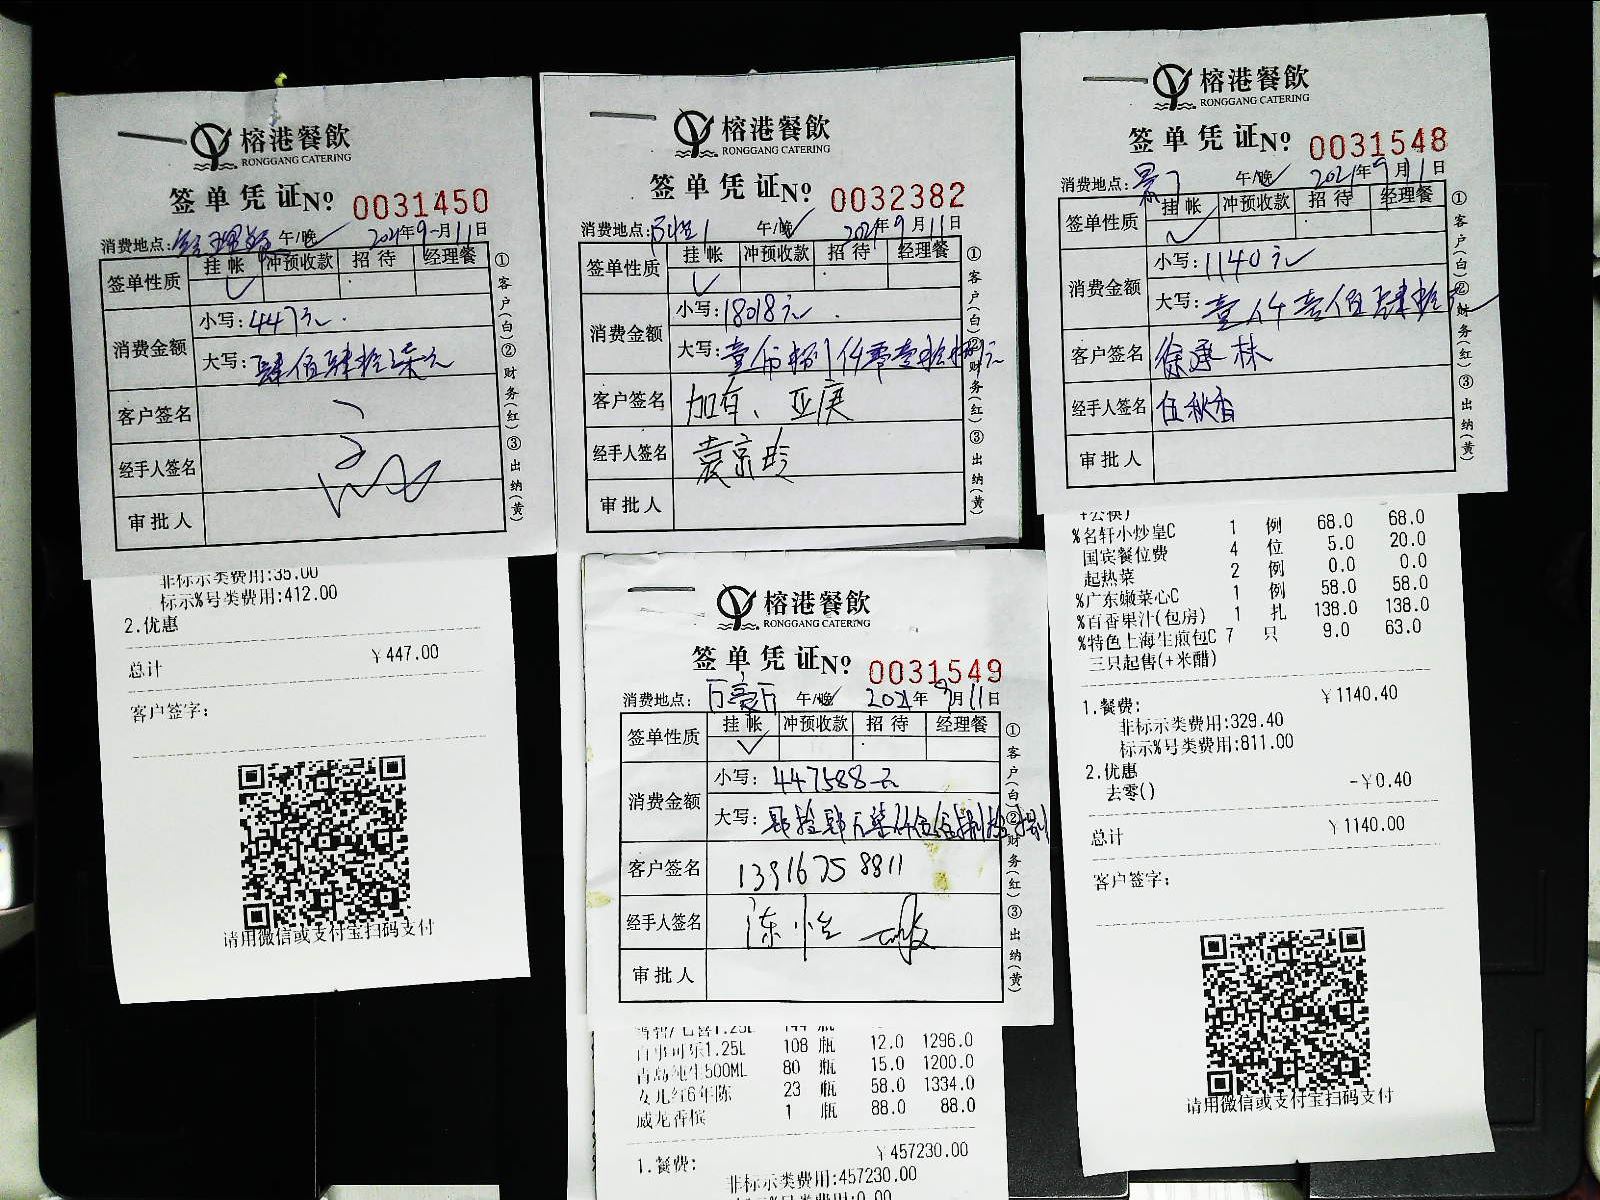 榕港餐飲
RONGGANG CATERING
签单凭证 № 0031450
消费地点: 经理餐 午/晚 2021年9月11日
签单性质 挂帐 冲预收款 招待 经理餐
消费金额
小写:447元.
大写:肆佰肆拾柒元
客户签名
经手人签名
审批人
①客户(白)②财务(红)③出纳(黄)
非标示类费用:35.00
标示%号类费用:412.00
2.优惠
总计 ¥447.00
客户签字:
请用微信或支付宝扫码支付
榕港餐飲
RONGGANG CATERING
签单凭证 № 0032382
消费地点: 午/晚 2021年9月11日
签单性质 挂帐 冲预收款 招待 经理餐
消费金额
小写:18018元.
大写:壹万捌仟零壹拾捌元
客户签名 加有、亚庚
经手人签名 袁京玲
审批人
①客户(白)②财务(红)③出纳(黄)
榕港餐飲
RONGGANG CATERING
签单凭证 № 0031549
消费地点: 午/晚 2021年9月11日
签单性质 挂帐 冲预收款 招待 经理餐
消费金额
小写:447588元
大写:肆拾肆万柒仟伍佰捌拾捌
客户签名 13916758811
经手人签名 陈怡
审批人
①客户(白)②财务(红)③出纳(黄)
百事可乐1.25L 108 瓶 12.0 1296.0
青岛纯生500ML 80 瓶 15.0 1200.0
女儿红6年陈 23 瓶 58.0 1334.0
威龙香槟 1 瓶 88.0 88.0
1.餐费: ¥457230.00
非标示类费用:457230.00
标示%号类费用:0.00
榕港餐飲
RONGGANG CATERING
签单凭证 № 0031548
消费地点: 午/晚 2021年9月11日
签单性质 挂帐 冲预收款 招待 经理餐
消费金额
小写:1140元
大写:壹仟壹佰肆拾元
客户签名 徐承林
经手人签名 伍秋香
审批人
①客户(白)②财务(红)③出纳(黄)
+公筷)
%名轩小炒皇C 1 例 68.0 68.0
国宾餐位费 4 位 5.0 20.0
起热菜 2 例 0.0 0.0
%广东嫩菜心C 1 例 58.0 58.0
%百香果汁(包房) 1 扎 138.0 138.0
%特色上海生煎包C 7 只 9.0 63.0
三只起售(+米醋)
1.餐费: ¥1140.40
非标示类费用:329.40
标示%号类费用:811.00
2.优惠
去零() -¥0.40
总计 ¥1140.00
客户签字:
请用微信或支付宝扫码支付